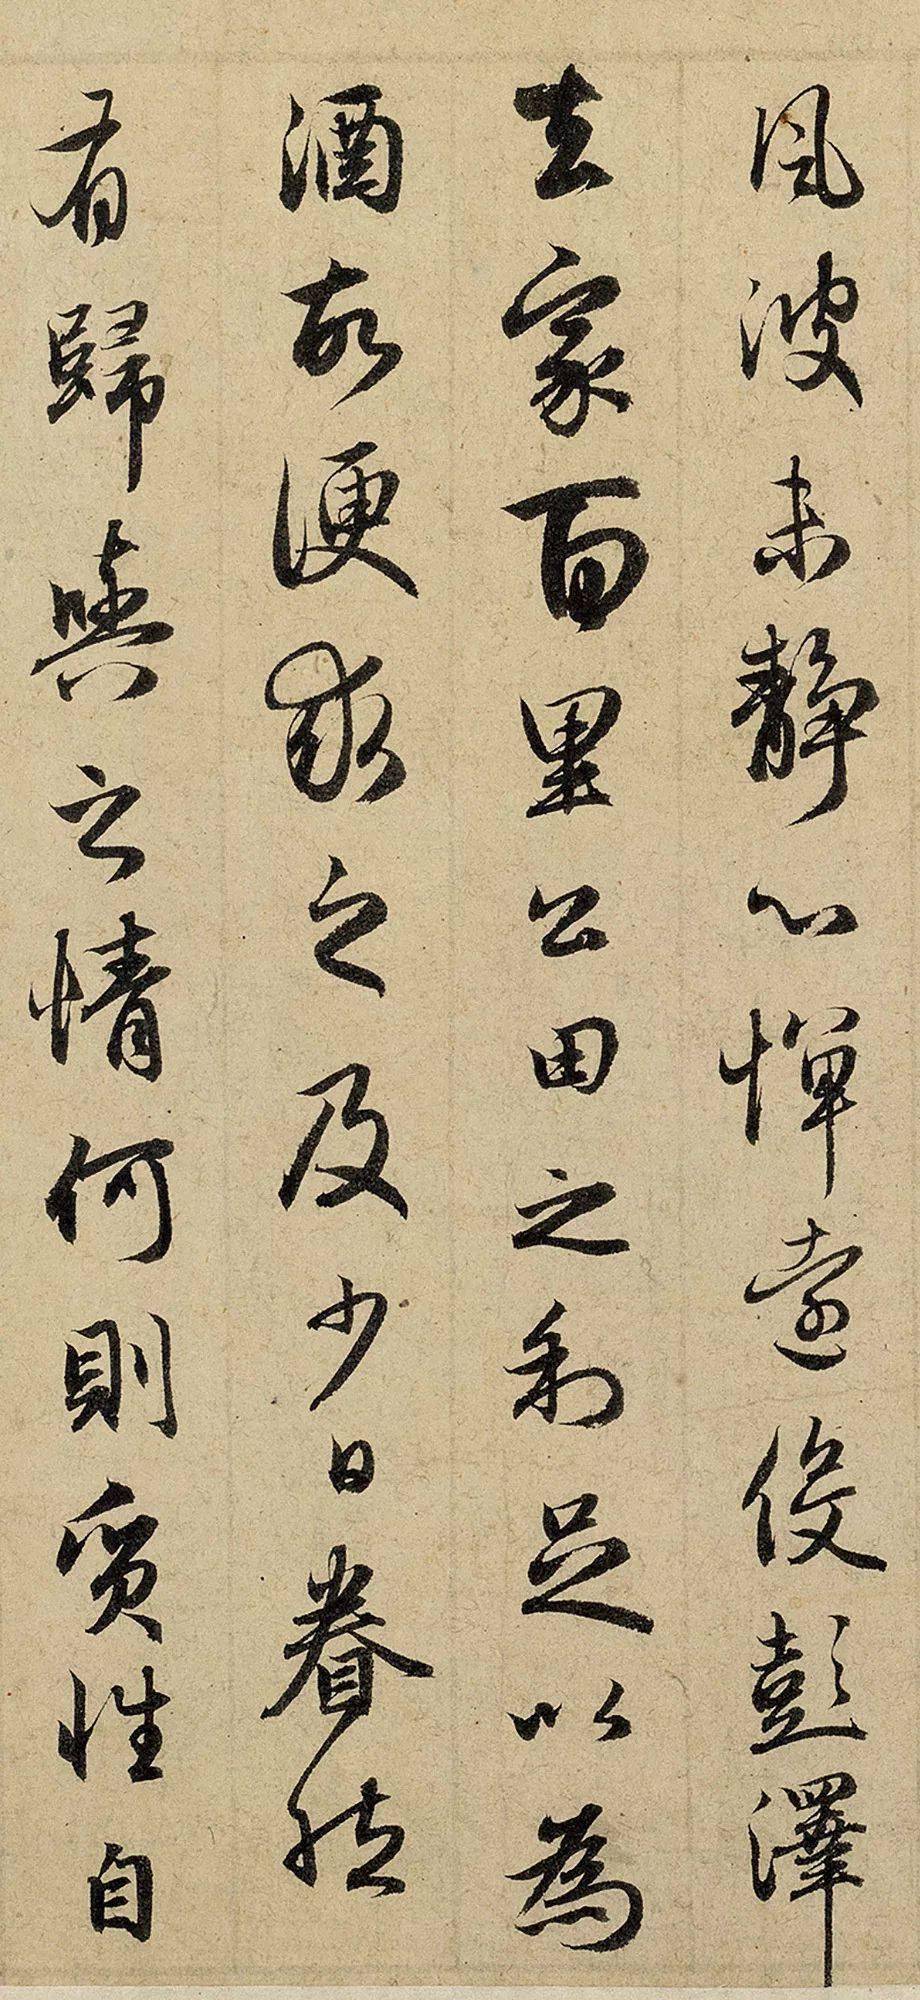 風波未靜心憚遠役彭澤
去家百里公田之利足以為
酒故便求之及少日眷然
有歸與之情何則質性自